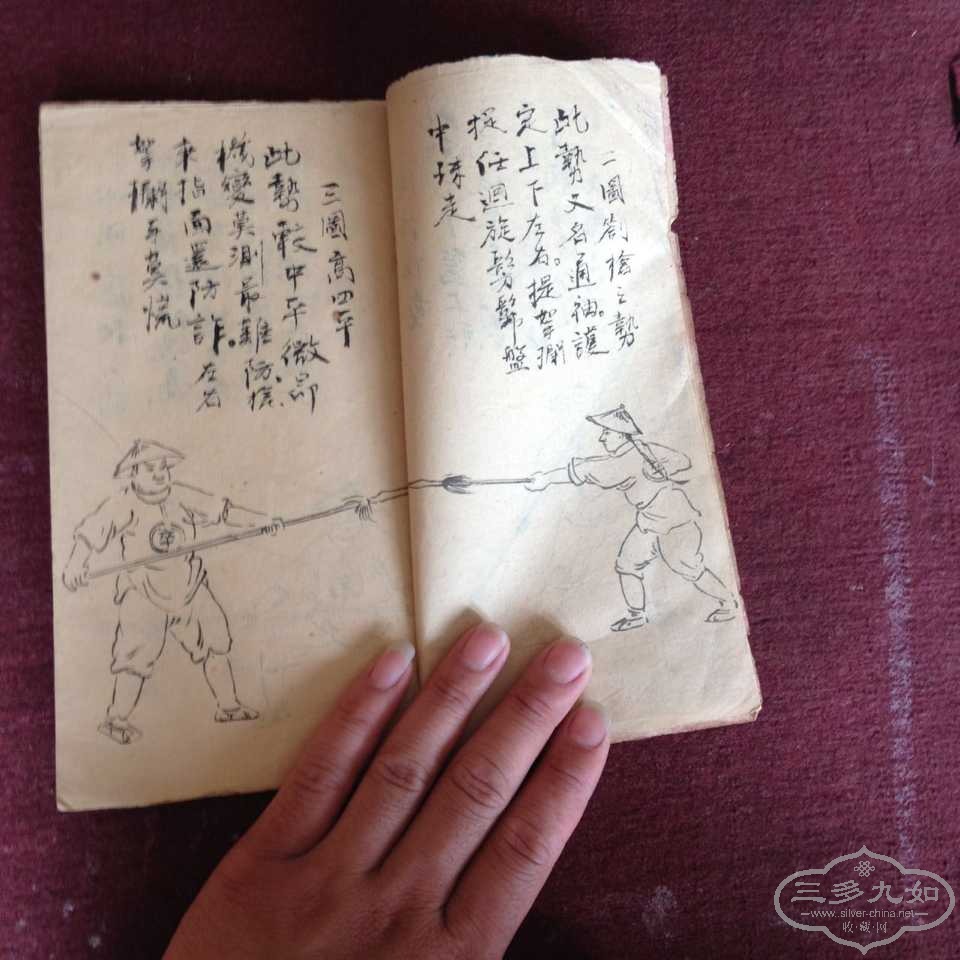 二圖劄槍之勢
此勢又名通袖。護
定上下左右。提拏攔
捉任迴旋髣髴盤
中珠走
三圖高四平
此勢較中平微昂
機變莫測最難防。槍
来指面還防詐。左右
拏攔手莫慌
三多九如
www.silver-china.net
收·藏·网